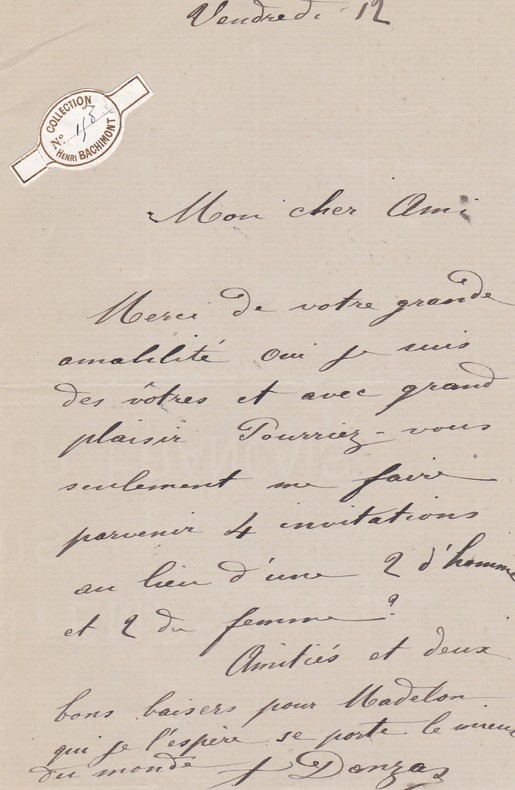 Vendredi 12
COLLECTION
N°. 113
HENRI BACHIMONT
Mon cher Ami
Merci de votre grande
amabilité oui je suis
des vôtres et avec grand
plaisir Pourriez-vous
seulement me faire
parvenir 4 invitations
au lieu d'une 2 d'homme
et 2 de femme ?
Amitiés et deux
bons baisers pour Madelon
qui je l'espère se porte le mieux
du monde J Danzas